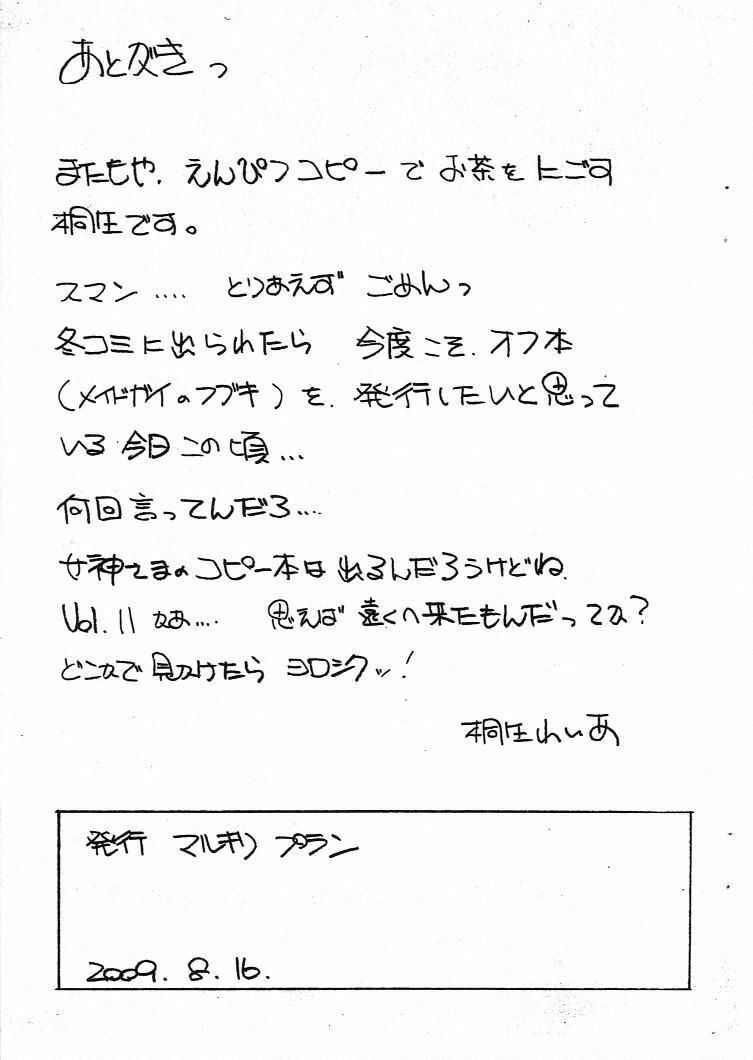 あとがきっ
またもや、えんぴつコピーでお茶をにごす
桐生です。
スマン‥‥ とりあえず ごめんっ
冬コミに出られたら 今度こそ、オフ本
(メイドガイのフブキ)を、発行したいと思って
いる今日この頃…
何回言ってんだろ…‥
女神さまのコピー本は出るんだろうけどね、
Vol.11 なぁ‥‥ 思えば遠くへ来たもんだってな?
どこかで見かけたら ヨロシクッ!
桐生れいあ
発行 マルキリプラン
2009.8.16.